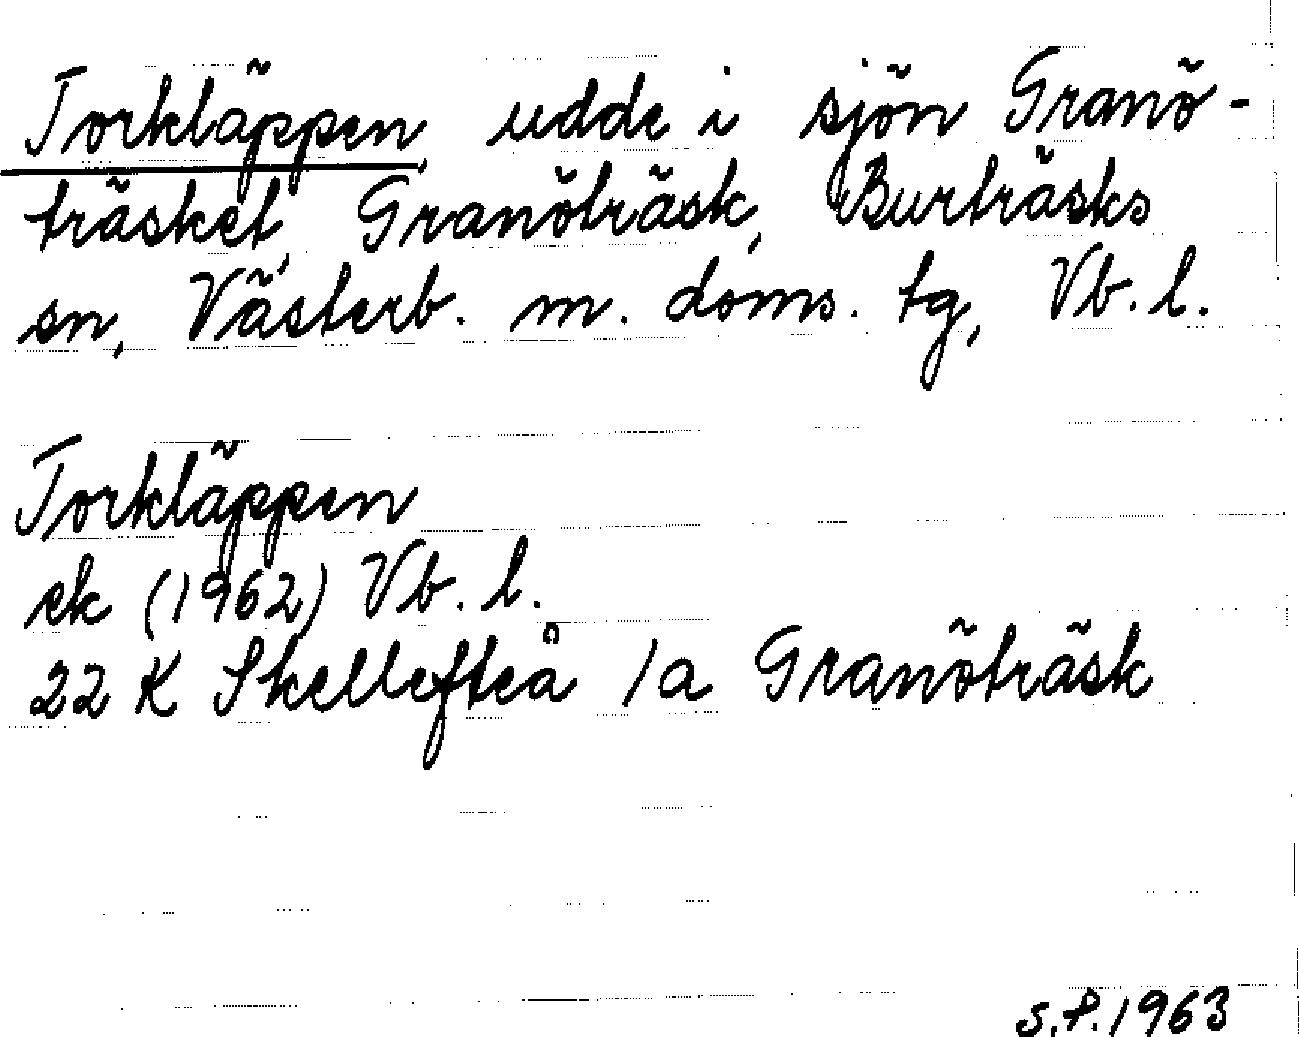 Torkläppen, udde i sjön Granö-
träsket, Granöträsk, Burträsks
sn, Västerb. m. doms. tg, Vb. l.
Torkläppen
ek (1962) Vb. l.
22 K Skellefteå 1a Granöträsk
S.P. 1963